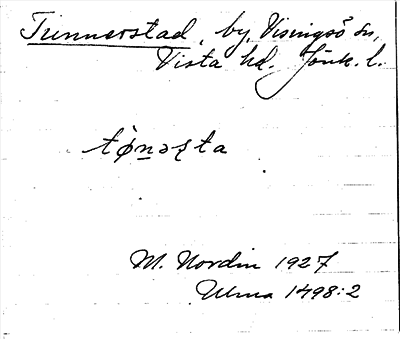 Tunnerstad, by, Visingsö sn,
Vista hd. Jönk. l.
tø̀nəʂta
M. Nordin 1927
Ulma 1498:2